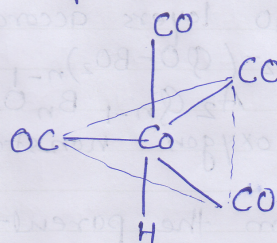 CO
CO
OC Co
CO
H